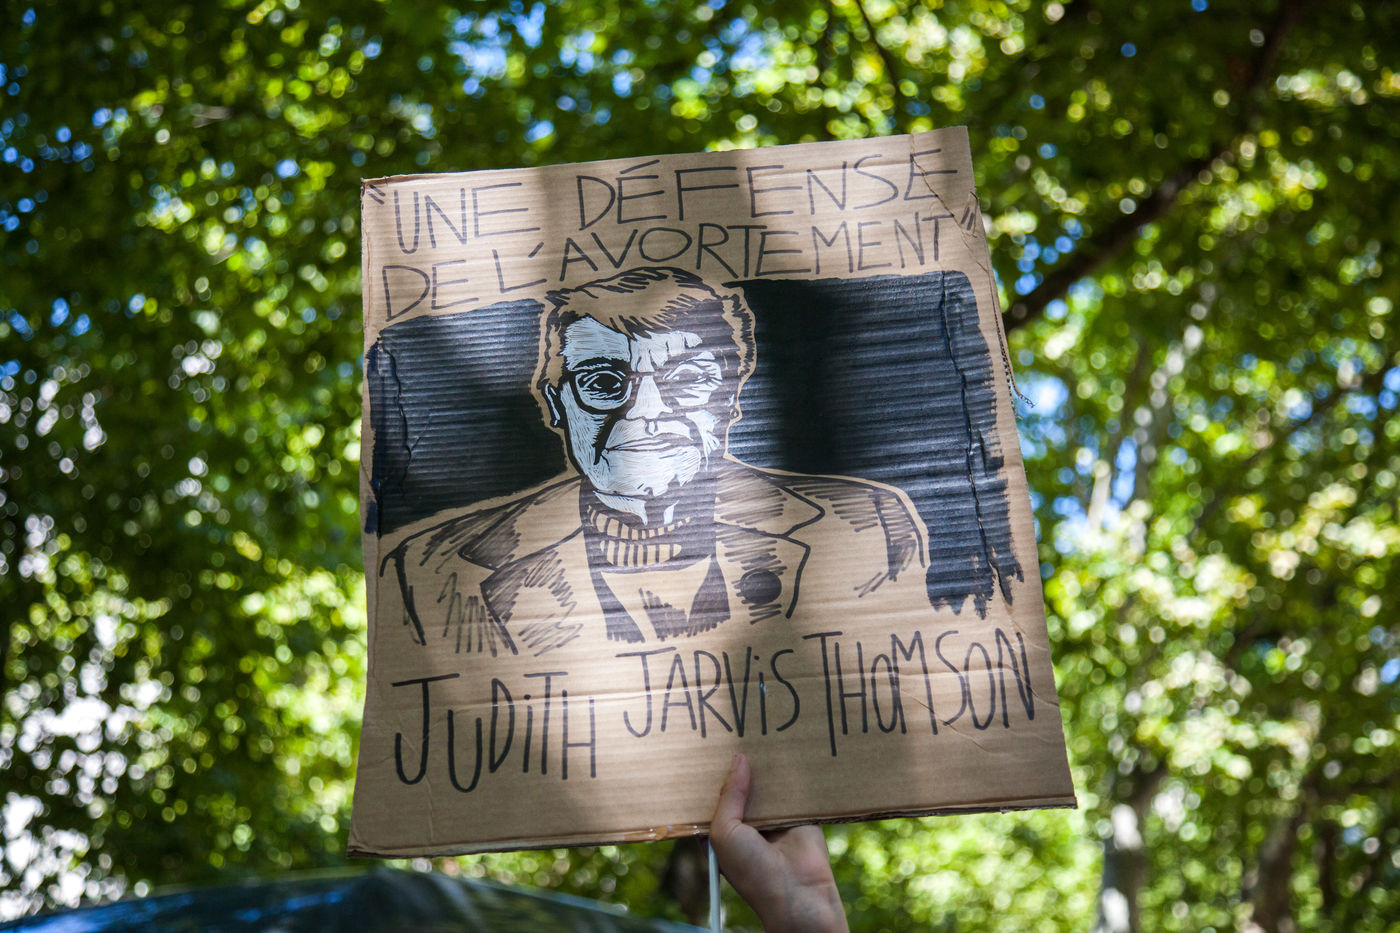 "UNE DÉFENSE
DE L'AVORTEMENT"
JUDiTH JARViS THOMSON